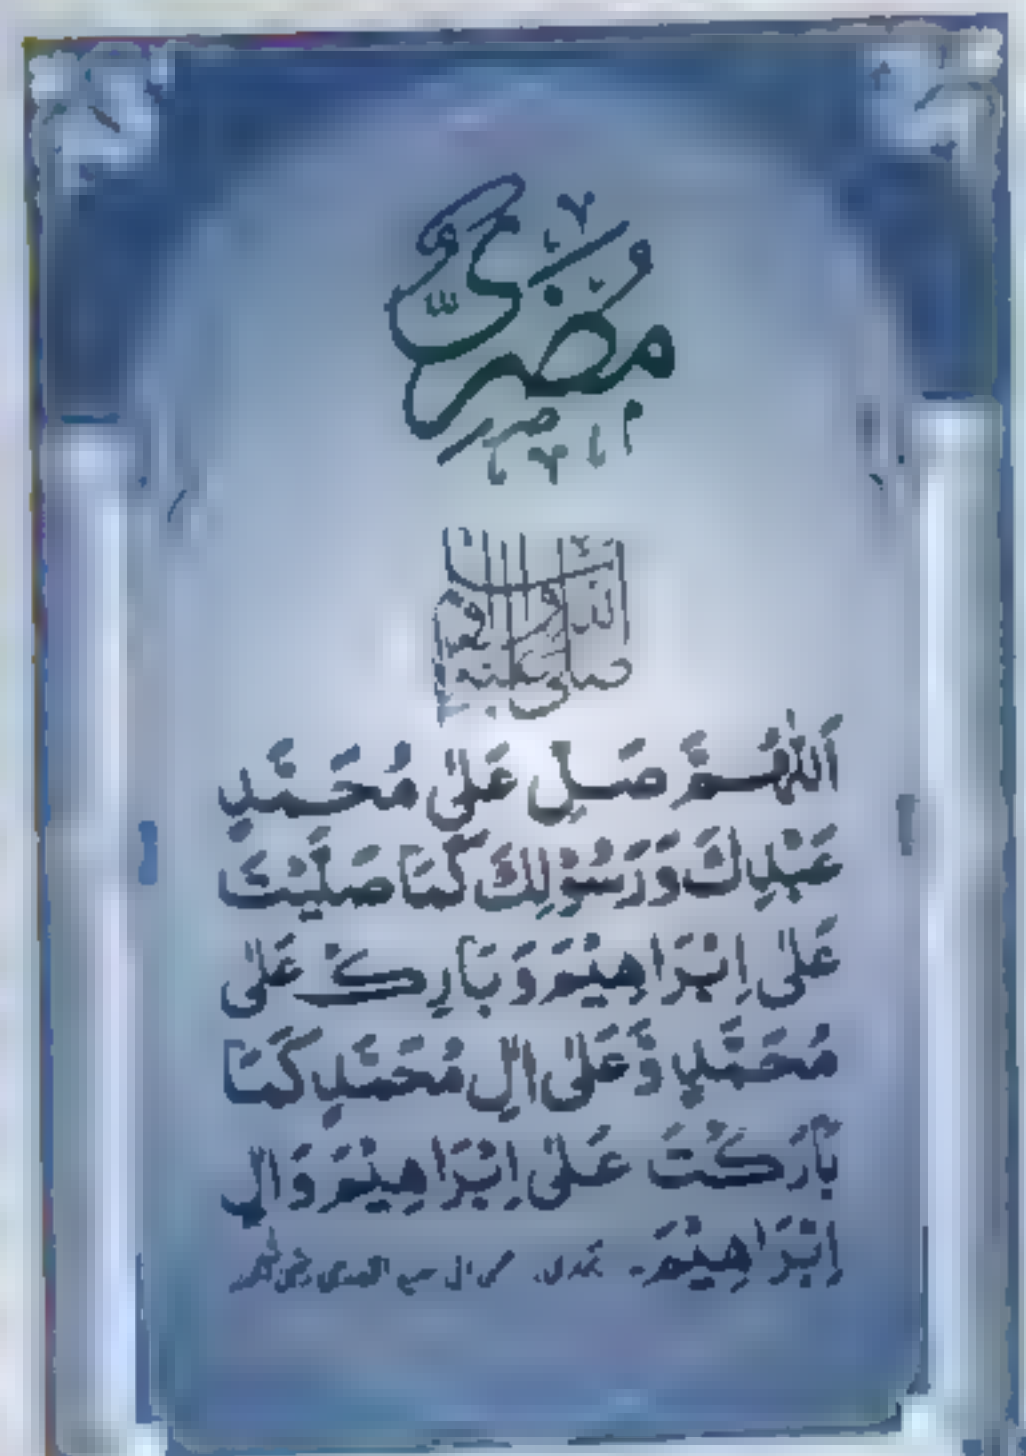 مُضَرِيٌّ
صلى الله عليه وسلم
اَللّٰهُمَّ صَلِّ عَلٰى مُحَمَّدٍ
عَبْدِكَ وَرَسُوْلِكَ كَمَا صَلَّيْتَ
عَلٰى اِبْرَاهِيْمَ وَبَارِكْ عَلٰى
مُحَمَّدٍ وَّعَلٰى اٰلِ مُحَمَّدٍ كَمَا
بَارَكْتَ عَلٰى اِبْرَاهِيْمَ وَاٰلِ
اِبْرَاهِيْمَ۔